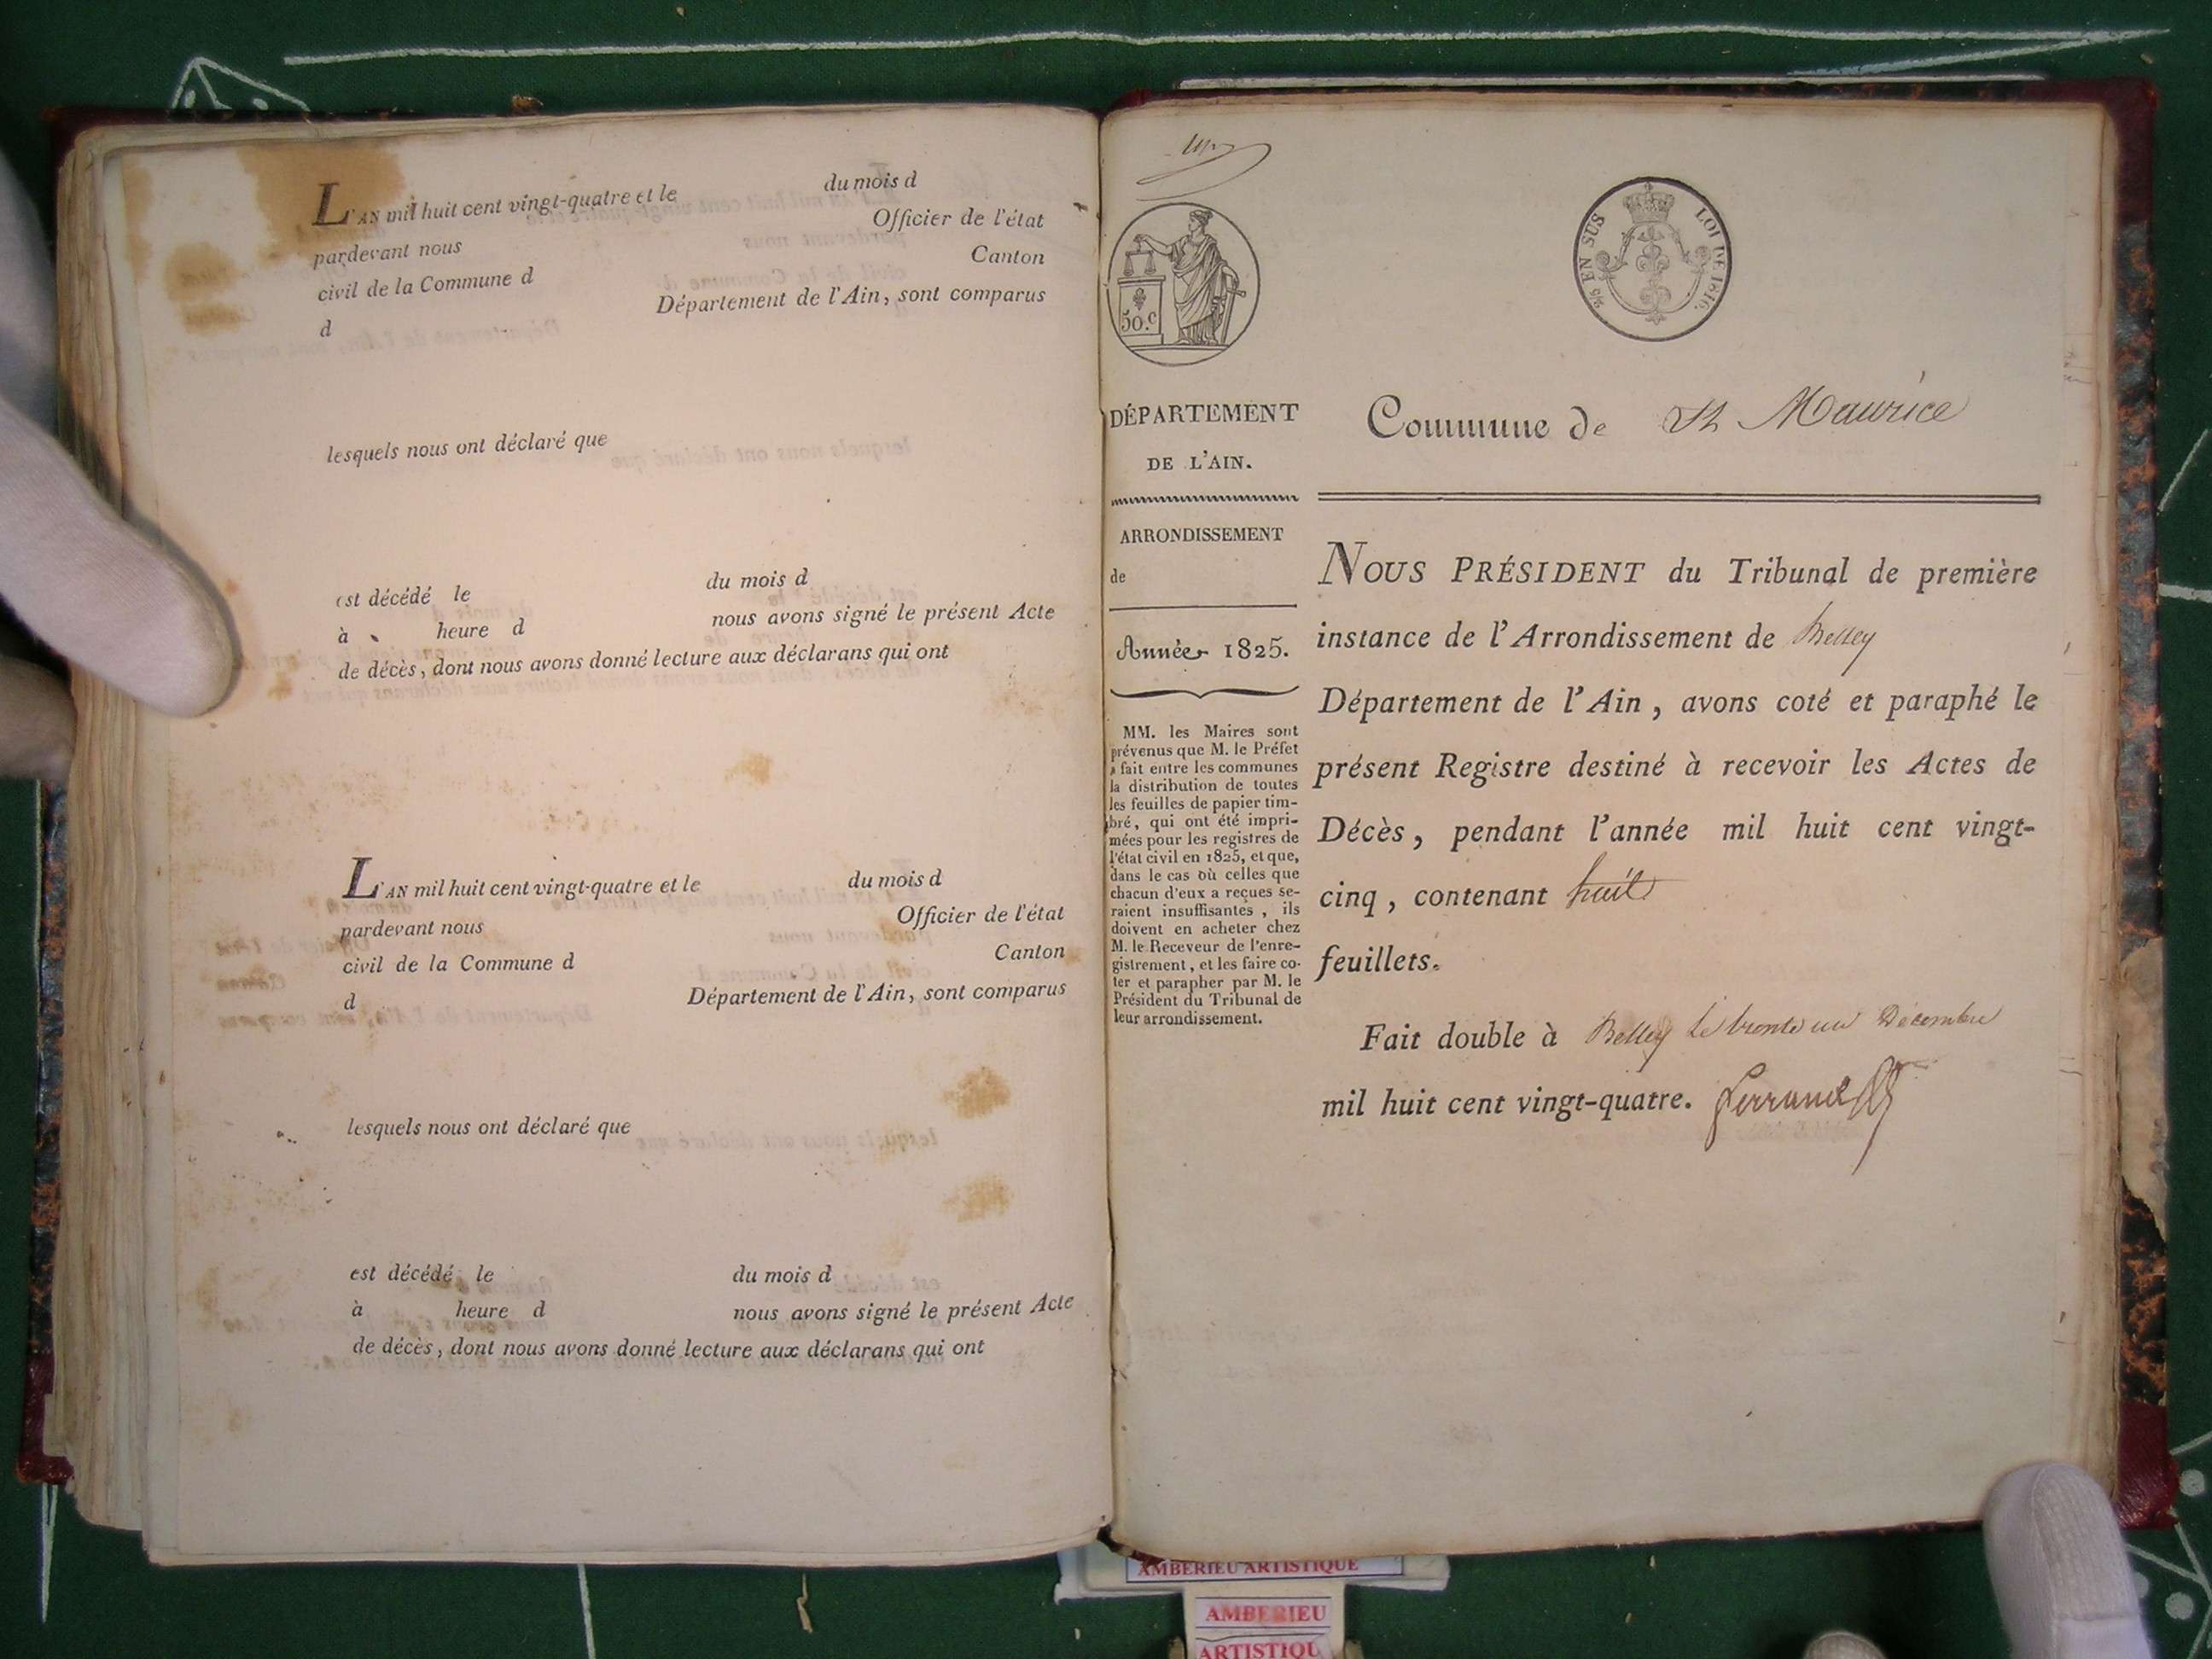 L'AN mil huit cent vingt-quatre et le du mois d
pardevant nous Officier de l'état
civil de la Commune d Canton
d Département de l'Ain, sont comparus
lesquels nous ont déclaré que
est décédé le du mois d
à heure d nous avons signé le présent Acte
de décès, dont nous avons donné lecture aux déclarans qui ont
L'AN mil huit cent vingt-quatre et le du mois d
pardevant nous Officier de l'état
civil de la Commune d Canton
d Département de l'Ain, sont comparus
lesquels nous ont déclaré que
est décédé le du mois d
à heure d nous avons signé le présent Acte
de décès, dont nous avons donné lecture aux déclarans qui ont
50.c
EN SUS LOI DE 1816.
DÉPARTEMENT
DE L'AIN.
ARRONDISSEMENT
de
Année 1825.
MM. les Maires sont
prévenus que M. le Préfet
a fait entre les communes
la distribution de toutes
les feuilles de papier tim-
bré, qui ont été impri-
mées pour les registres de
l'état civil en 1825, et que,
dans le cas où celles que
chacun d'eux a reçues se-
raient insuffisantes, ils
doivent en acheter chez
M. le Receveur de l'enre-
gistrement, et les faire co-
ter et parapher par M. le
Président du Tribunal de
leur arrondissement.
Commune de St Maurice
NOUS PRÉSIDENT du Tribunal de première
instance de l'Arrondissement de Belley
Département de l'Ain, avons coté et paraphé le
présent Registre destiné à recevoir les Actes de
Décès, pendant l'année mil huit cent vingt-
cinq, contenant huit
feuillets.
Fait double à Belley le trente un Décembre
mil huit cent vingt-quatre.
AMBERIEU ARTISTIQUE
AMBERIEU
ARTISTIQU